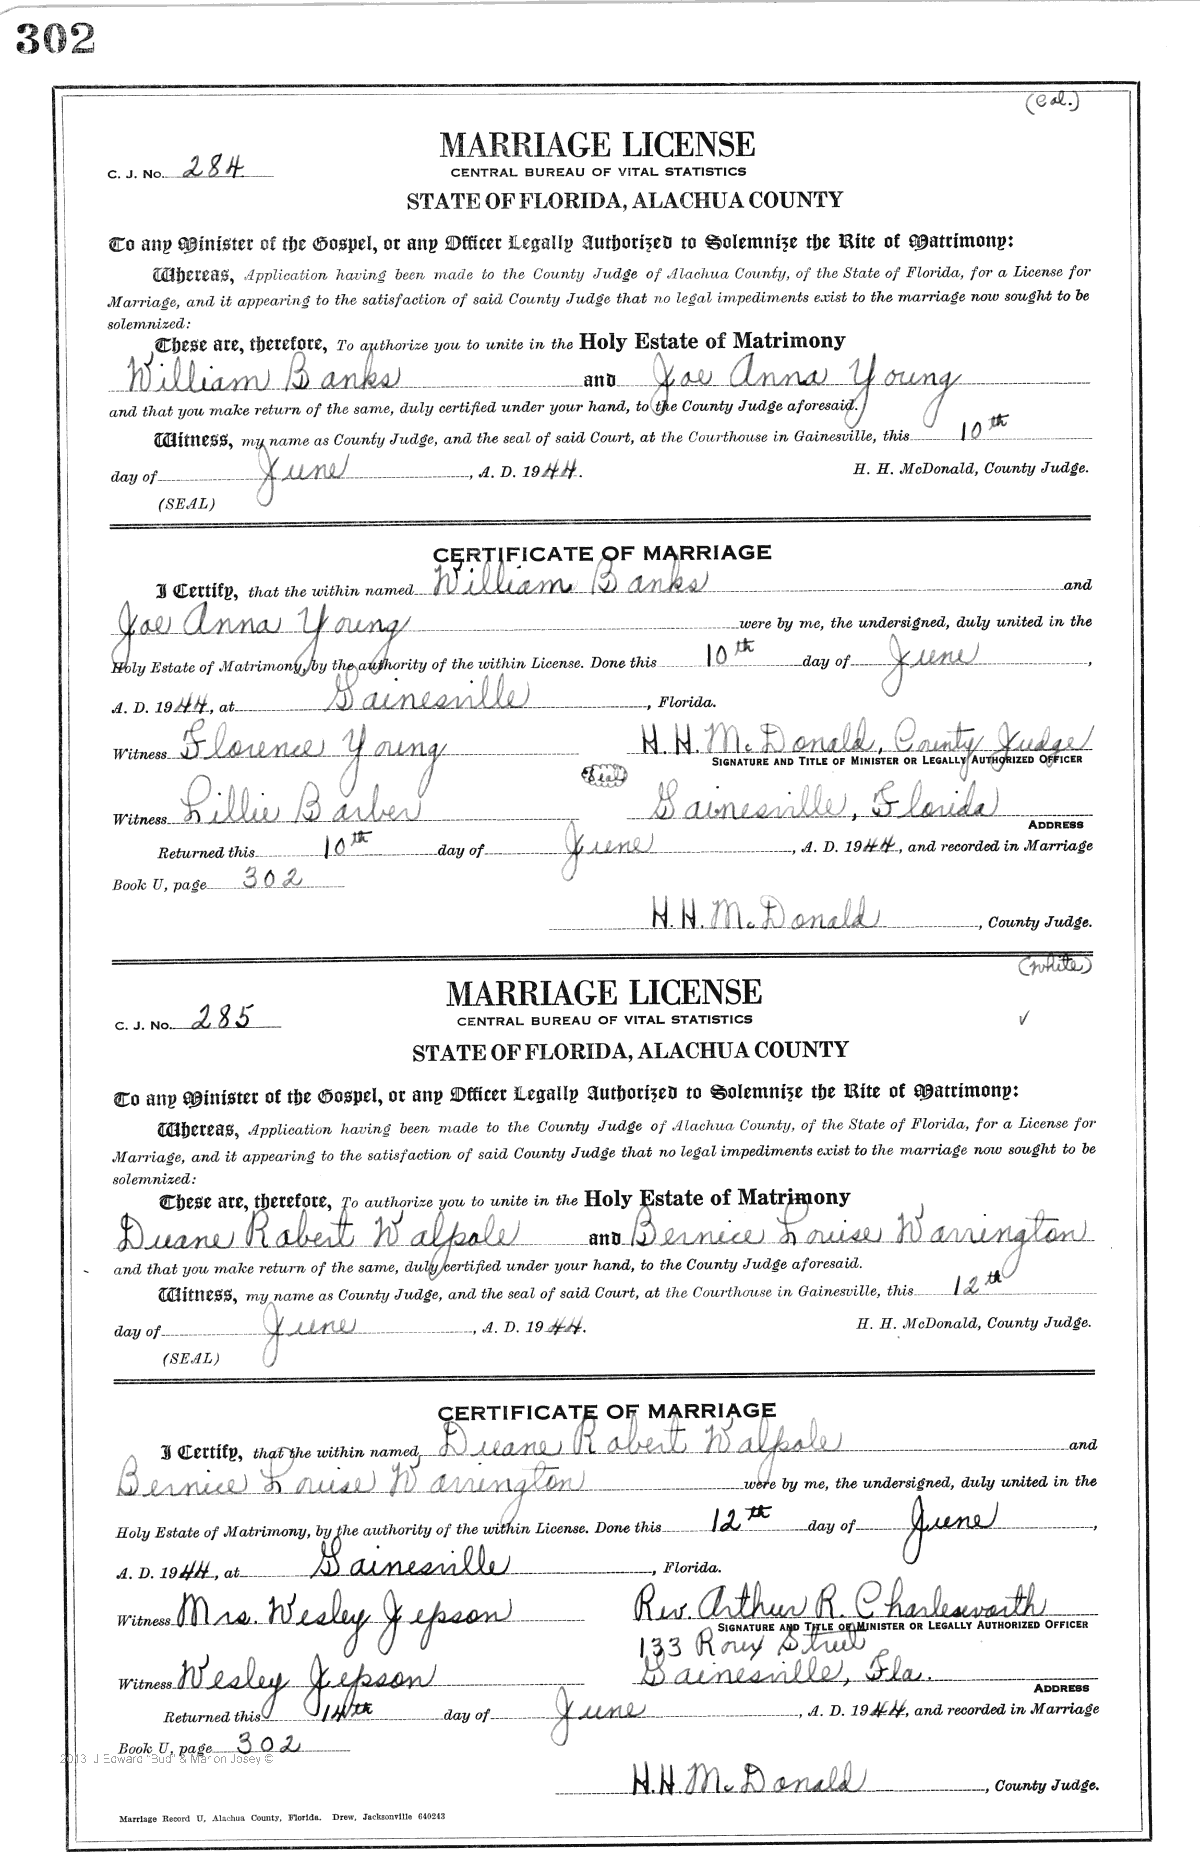 302
(Col.)
MARRIAGE LICENSE
C. J. No. 284
CENTRAL BUREAU OF VITAL STATISTICS
STATE OF FLORIDA, ALACHUA COUNTY
To any Minister of the Gospel, or any Officer Legally Authorized to Solemnize the Rite of Matrimony:
Whereas, Application having been made to the County Judge of Alachua County, of the State of Florida, for a License for
Marriage, and it appearing to the satisfaction of said County Judge that no legal impediments exist to the marriage now sought to be
solemnized:
These are, therefore, To authorize you to unite in the Holy Estate of Matrimony
William Banks and Joe Anna Young
and that you make return of the same, duly certified under your hand, to the County Judge aforesaid.
Witness, my name as County Judge, and the seal of said Court, at the Courthouse in Gainesville, this 10th
day of June, A. D. 1944. H. H. McDonald, County Judge.
(SEAL)
CERTIFICATE OF MARRIAGE
I Certify, that the within named William Banks and
Joe Anna Young were by me, the undersigned, duly united in the
Holy Estate of Matrimony, by the authority of the within License. Done this 10th day of June,
A. D. 1944, at Gainesville, Florida.
Witness Florence Young H. H. McDonald, County Judge
SIGNATURE AND TITLE OF MINISTER OR LEGALLY AUTHORIZED OFFICER
(Seal)
Witness Lillie Barber Gainesville, Florida
ADDRESS
Returned this 10th day of June, A. D. 1944, and recorded in Marriage
Book U, page 302
H. H. McDonald, County Judge.
(White)
MARRIAGE LICENSE
C. J. No. 285
CENTRAL BUREAU OF VITAL STATISTICS
✓
STATE OF FLORIDA, ALACHUA COUNTY
To any Minister of the Gospel, or any Officer Legally Authorized to Solemnize the Rite of Matrimony:
Whereas, Application having been made to the County Judge of Alachua County, of the State of Florida, for a License for
Marriage, and it appearing to the satisfaction of said County Judge that no legal impediments exist to the marriage now sought to be
solemnized:
These are, therefore, To authorize you to unite in the Holy Estate of Matrimony
Duane Robert Walpole and Bernice Louise Warrington
and that you make return of the same, duly certified under your hand, to the County Judge aforesaid.
Witness, my name as County Judge, and the seal of said Court, at the Courthouse in Gainesville, this 12th
day of June, A. D. 1944. H. H. McDonald, County Judge.
(SEAL)
CERTIFICATE OF MARRIAGE
I Certify, that the within named, Duane Robert Walpole and
Bernice Louise Warrington were by me, the undersigned, duly united in the
Holy Estate of Matrimony, by the authority of the within License. Done this 12th day of June,
A. D. 1944, at Gainesville, Florida.
Witness Mrs. Wesley Jepson Rev. Arthur R. Charlesworth
SIGNATURE AND TITLE OF MINISTER OR LEGALLY AUTHORIZED OFFICER
133 Roux Street
Witness Wesley Jepson Gainesville, Fla.
ADDRESS
Returned this 14th day of June, A. D. 1944, and recorded in Marriage
Book U, page 302
2013 J Edward "Bud" & Marion Josey ©
H. H. McDonald, County Judge.
Marriage Record U, Alachua County, Florida. Drew, Jacksonville 640243